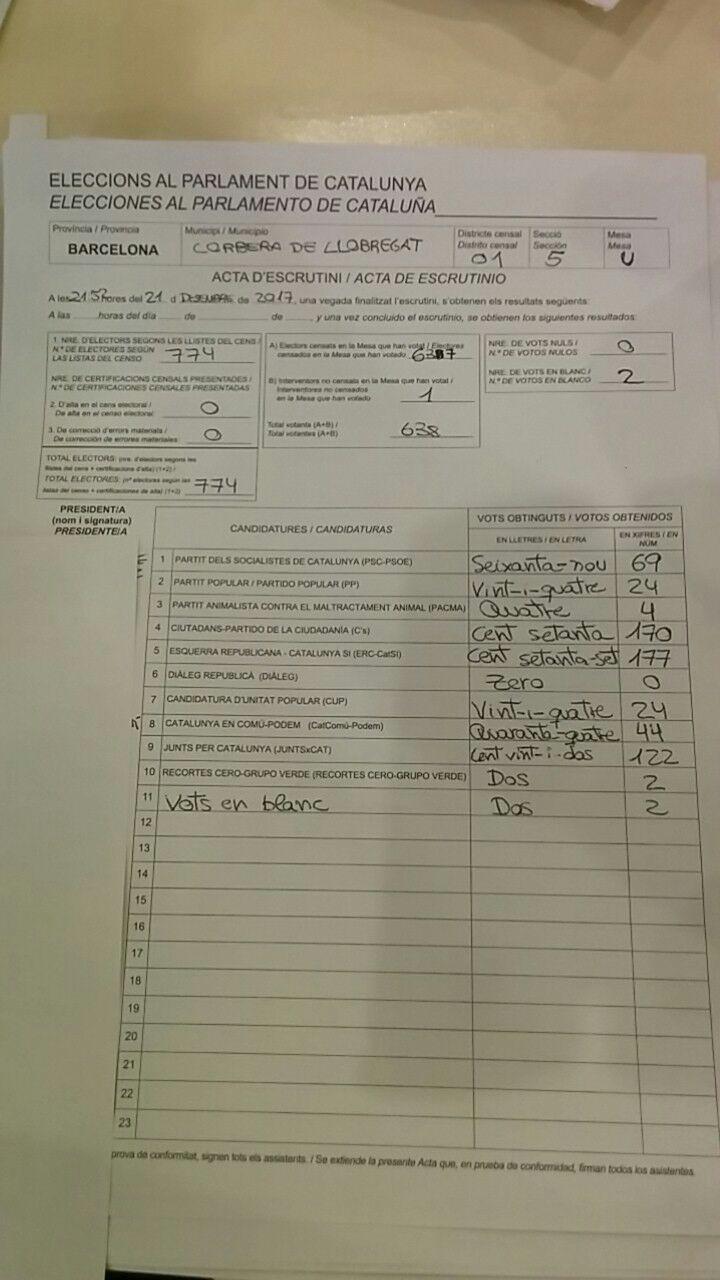 ELECCIONS AL PARLAMENT DE CATALUNYA
ELECCIONES AL PARLAMENTO DE CATALUÑA
Província / Provincia
BARCELONA
Municipi / Municipio
CORBERA DE LLOBREGAT
Districte censal
Distrito censal
01
Secció
Sección
5
Mesa
Mesa
U
ACTA D'ESCRUTINI / ACTA DE ESCRUTINIO
A les 21.5 hores del 21 d DESEMBRE de 2017, una vegada finalitzat l'escrutini, s'obtenen els resultats següents:
A las horas del día de de , y una vez concluido el escrutinio, se obtienen los siguientes resultados:
1. NRE. D'ELECTORS SEGONS LES LLISTES DEL CENS /
N.º DE ELECTORES SEGÚN
LAS LISTAS DEL CENSO
774
NRE. DE CERTIFICACIONS CENSALS PRESENTADES /
N.º DE CERTIFICACIONES CENSALES PRESENTADAS
2. D'alta en el cens electoral /
De alta en el censo electoral:
0
3. De correcció d'errors materials /
De corrección de errores materiales:
0
TOTAL ELECTORS: (nre. d'electors segons les
llistes del cens + certificacions d'alta) (1+2) /
TOTAL ELECTORES: (nº electores según las
listas del censo + certificaciones de alta) (1+2)
774
A) Electors censats en la Mesa que han votat / Electores
censados en la Mesa que han votado
637
B) Interventors no censats en la Mesa que han votat /
Interventores no censados
en la Mesa que han votado
1
Total votants (A+B) /
Total votantes (A+B)
638
NRE. DE VOTS NULS /
N.º DE VOTOS NULOS
0
NRE. DE VOTS EN BLANC /
N.º DE VOTOS EN BLANCO
2
PRESIDENT/A
(nom i signatura)
PRESIDENTE/A
CANDIDATURES / CANDIDATURAS
VOTS OBTINGUTS / VOTOS OBTENIDOS
EN LLETRES / EN LETRA
EN XIFRES / EN NÚM
1 PARTIT DELS SOCIALISTES DE CATALUNYA (PSC-PSOE) Seixanta-nou 69
2 PARTIT POPULAR / PARTIDO POPULAR (PP) Vint-i-quatre 24
3 PARTIT ANIMALISTA CONTRA EL MALTRACTAMENT ANIMAL (PACMA) Quatre 4
4 CIUTADANS-PARTIDO DE LA CIUDADANÍA (C's) Cent setanta 170
5 ESQUERRA REPUBLICANA - CATALUNYA SÍ (ERC-CatSí) Cent setanta-set 177
6 DIÀLEG REPUBLICÀ (DIÀLEG) Zero 0
7 CANDIDATURA D'UNITAT POPULAR (CUP) Vint-i-quatre 24
8 CATALUNYA EN COMÚ-PODEM (CatComú-Podem) Quaranta-quatre 44
9 JUNTS PER CATALUNYA (JUNTSxCAT) Cent vint-i-dos 122
10 RECORTES CERO-GRUPO VERDE (RECORTES CERO-GRUPO VERDE) Dos 2
11 Vots en blanc Dos 2
12
13
14
15
16
17
18
19
20
21
22
23
prova de conformitat, signen tots els assistents. / Se extiende la presente Acta que, en prueba de conformidad, firman todos los asistentes.